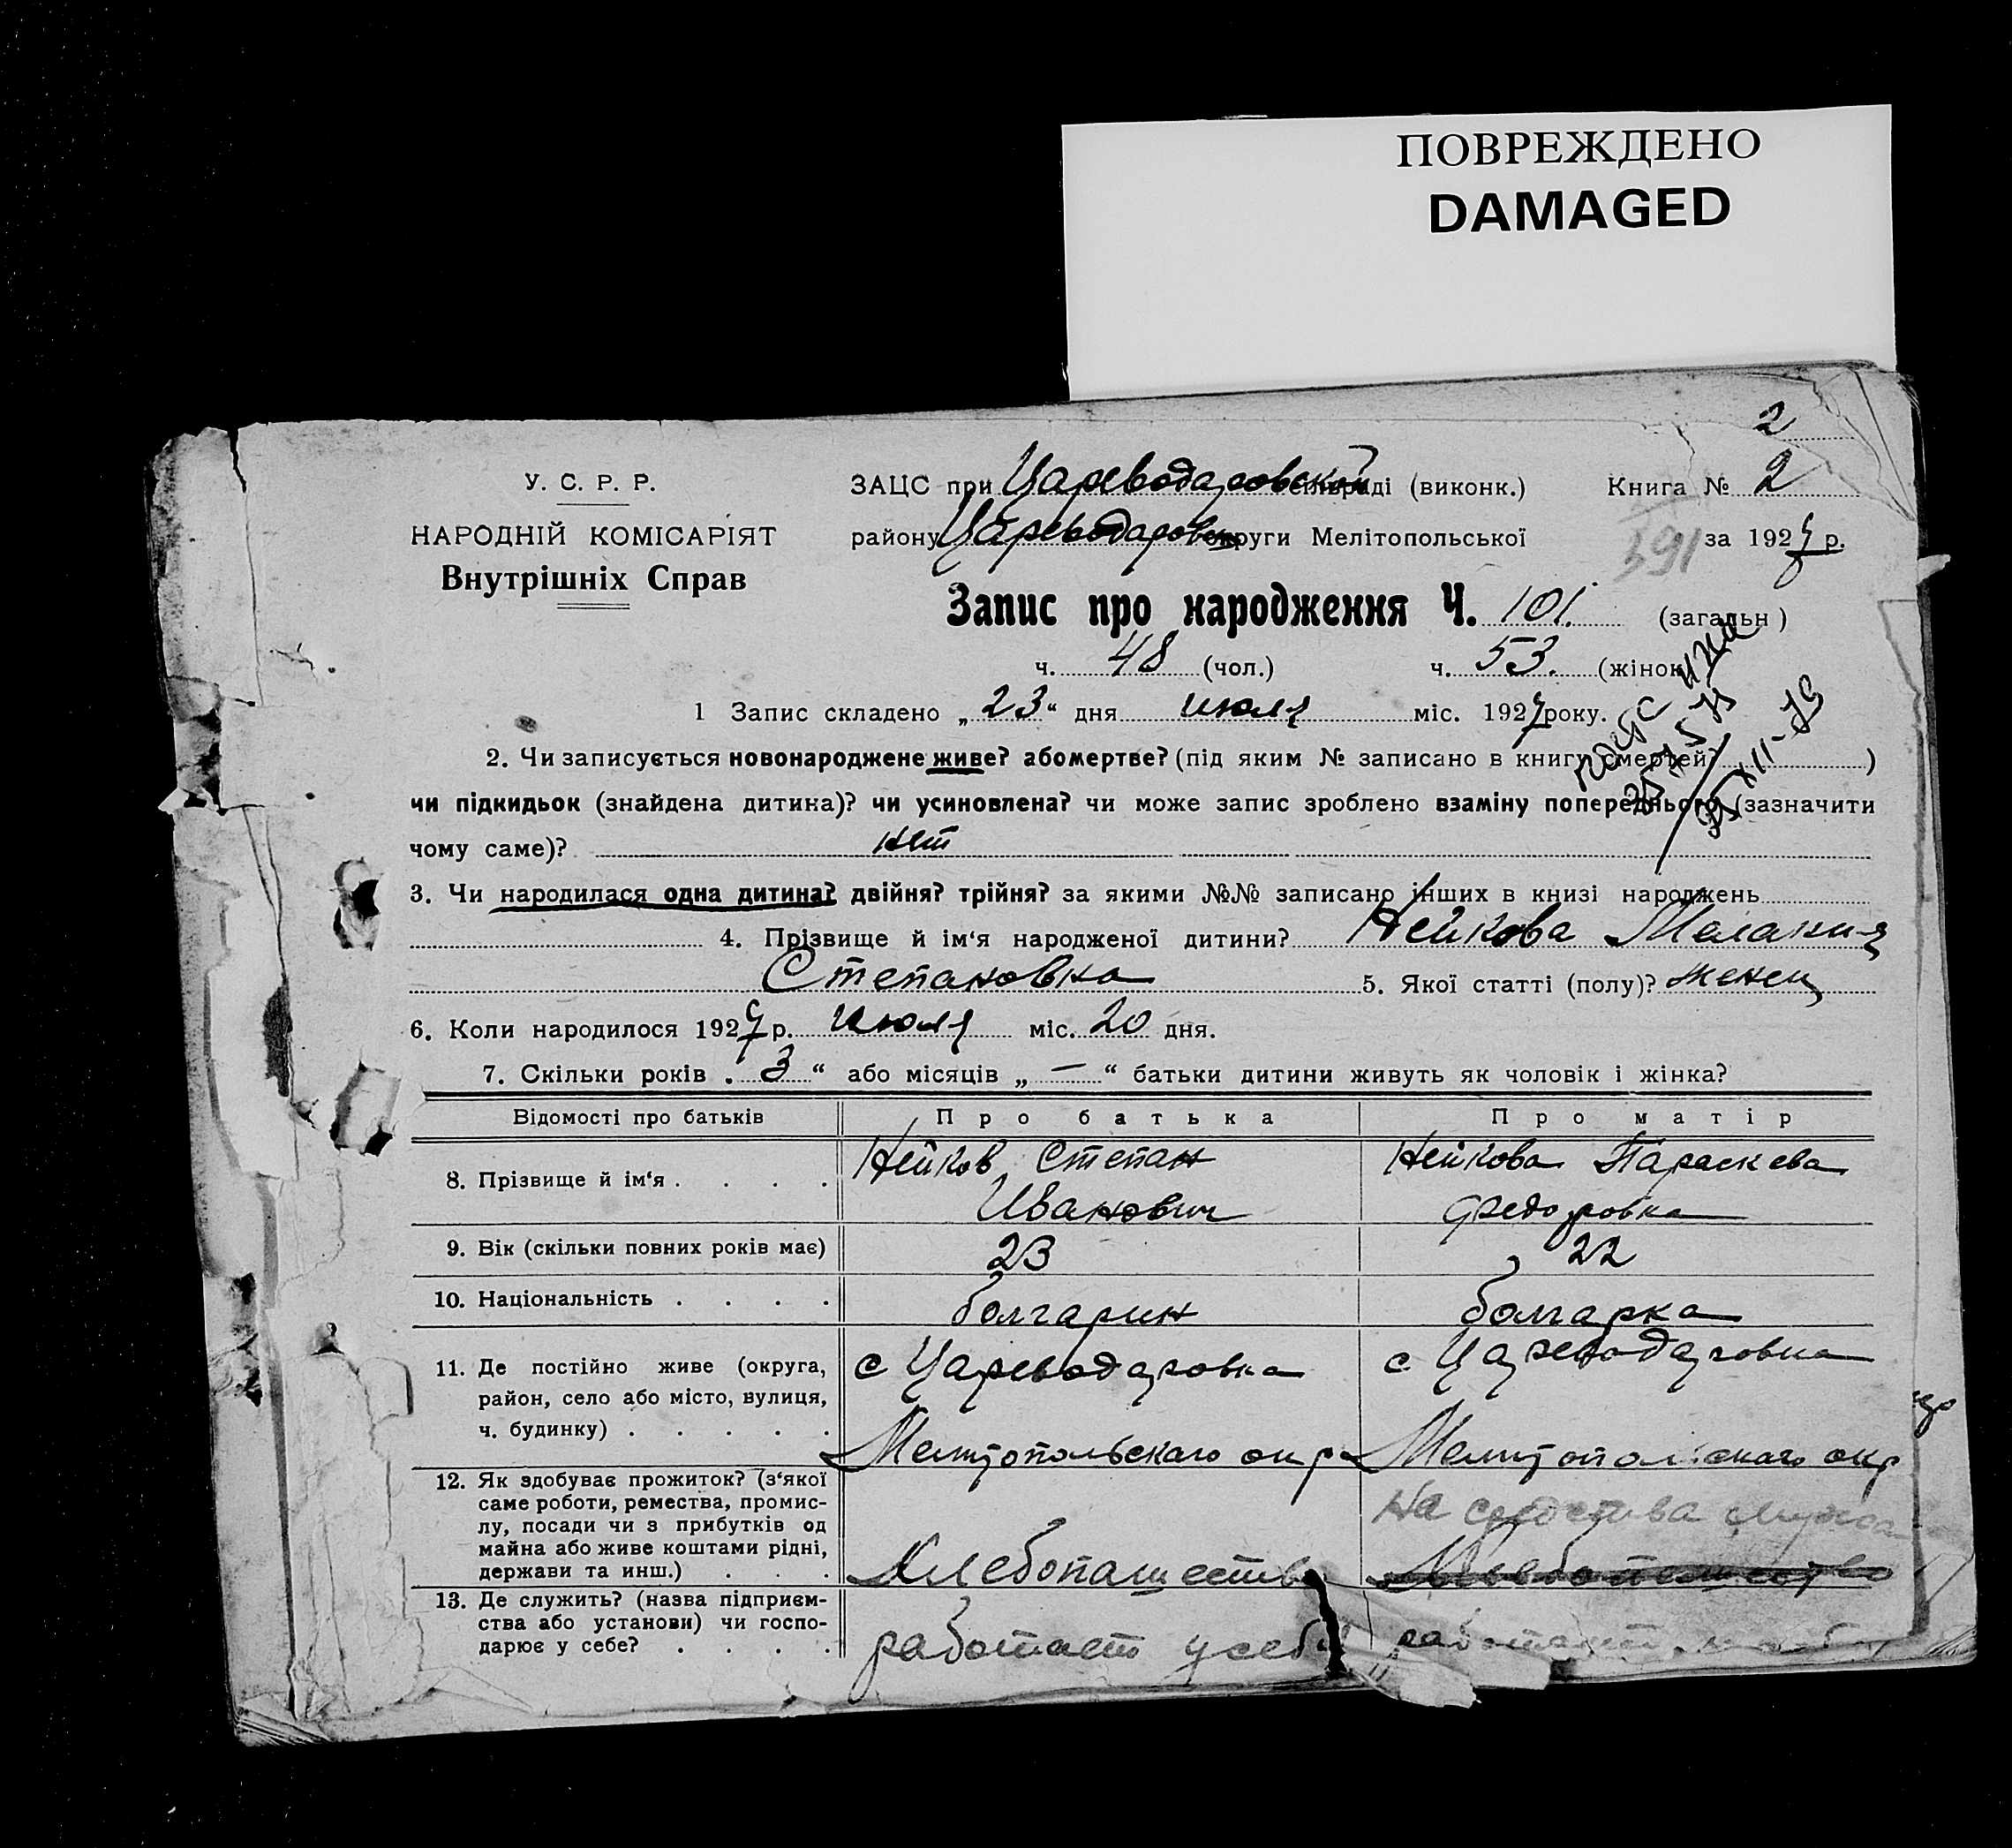 ПОВРЕЖДЕНО
DAMAGED
2
У. С. Р. Р.
НАРОДНІЙ КОМІСАРІЯТ
Внутрішніх Справ
ЗАЦС при Цареводаровской сільраді (виконк.) Книга № 2
району Цареводаровск округи Мелітопольської 391 за 1927 р.
Запис про народження Ч. 101. (загальн)
ч. 48 (чол.) ч. 53. (жінок
1 Запис складено „23“ дня июля міс. 1927 року.
2. Чи записується новонароджене живе? або мертве? (під яким № записано в книгу смертей? )
чи підкидьок (знайдена дитина)? чи усиновлена? чи може запис зроблено взаміну попереднього (зазначити
чому саме)? нет
3. Чи народилася одна дитина? двійня? трійня? за якими №№ записано інших в книзі народжень
4. Прізвище й ім‘я народженої дитини? Нейкова Мелания
Степановна 5. Якої статті (полу)? женск
6. Коли народилося 1927 р. июля міс. 20 дня.
7. Скільки років „3“ або місяців „—“ батьки дитини живуть як чоловік і жінка?
Відомості про батьків Про батька Про матір
8. Прізвище й ім‘я . . . . Нейков Степан Нейкова Параскева
Иванович Федоровна
9. Вік (скільки повних років має) 23 22
10. Національність . . . . болгарин болгарка
11. Де постійно живе (округа, с Цареводаровка с Цареводаровка
район, село або місто, вулиця,
ч. будинку) . . . . . Мелитопольскаго окр Мелитопольскаго окр
12. Як здобуває прожиток? (з‘якої
саме роботи, ремества, промис- на средства мужа
лу, посади чи з прибутків од
майна або живе коштами рідні,
держави та инш.) . . . Хлебопашество Хлебопашество
13. Де служить? (назва підприєм-
ства або установи) чи госпо-
дарює у себе? . . . . работает у себя работает